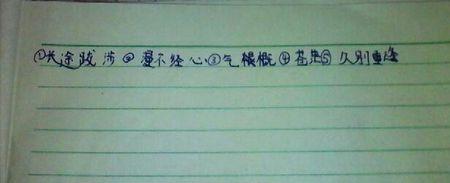 ①长途跋涉②漫不经心③气概④茬⑤久别重逢